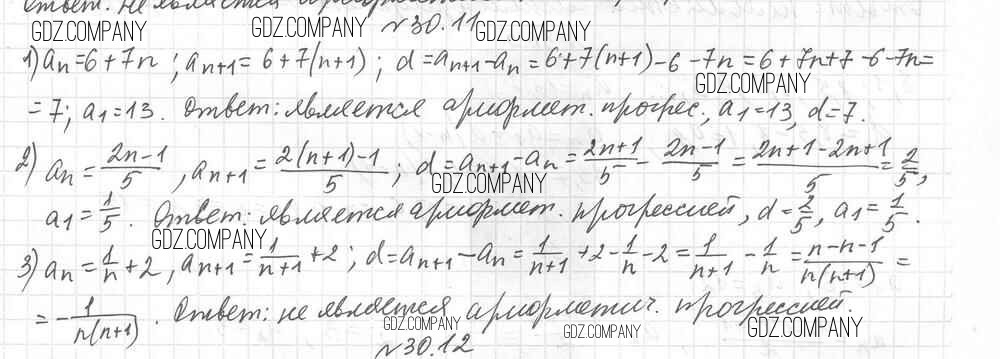 Ответ: не является арифмет
GDZ.COMPANY GDZ.COMPANY №30.11 GDZ.COMPANY
1) aₙ=6+7n ; aₙ₊₁=6+7(n+1) ; d=aₙ₊₁-aₙ=6+7(n+1)-6-7n=6+7n+7-6-7n=
GDZ.COMPANY
=7; a₁=13. Ответ: является арифмет. прогрес., a₁=13, d=7.
2) aₙ=(2n-1)/5 , aₙ₊₁=(2(n+1)-1)/5 ; d=aₙ₊₁-aₙ=(2n+1)/5-(2n-1)/5=(2n+1-2n+1)/5=2/5,
GDZ.COMPANY
a₁=1/5. Ответ: является арифмет. прогрессией, d=2/5, a₁=1/5.
GDZ.COMPANY
3) aₙ=1/n+2, aₙ₊₁=1/(n+1)+2 ; d=aₙ₊₁-aₙ=1/(n+1)+2-1/n-2=1/(n+1)-1/n=(n-n-1)/(n(n+1))=
=-1/(n(n+1)). Ответ: не является арифметич. прогрессией.
GDZ.COMPANY GDZ.COMPANY GDZ.COMPANY
№30.12